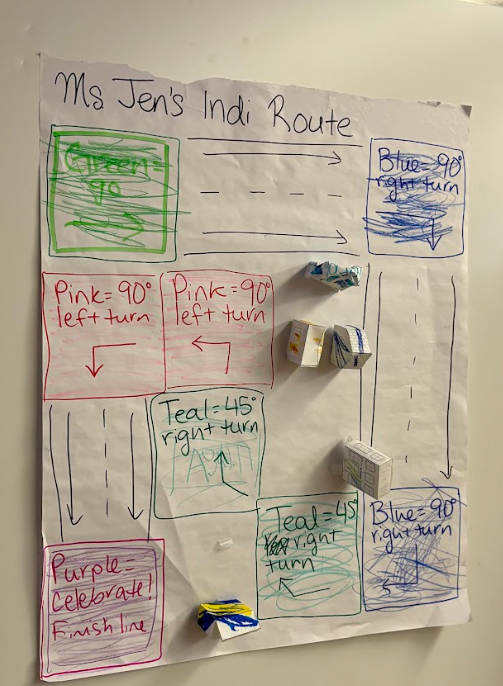 Ms Jen's Indi Route
Green=
go
Blue=90°
right turn
Pink=90°
left turn
Pink=90°
left turn
Teal=45°
right turn
Teal=45°
right
turn
Blue=90°
right turn
Purple=
Celebrate!
Finish line